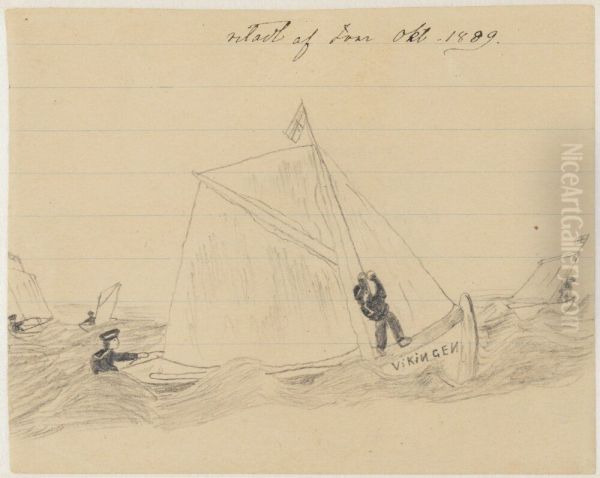 ritadt af Ivar Okt - 1889.
VIKINGEN
NiceArtGallery.com